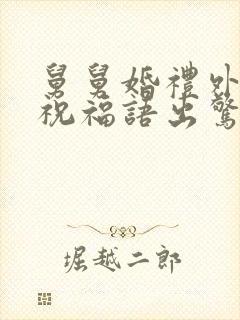 舅舅婚禮外
祝福語出驚
堀越二郎